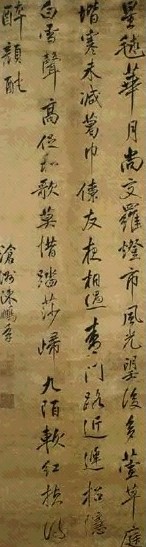 星毬華月尚交羅燈市風光望後多萱草庭
堦寒未減葛巾儔友夜相過青門路近連招隱
白雪聲高從和歌莫惜踏莎歸九陌軟紅
醉顏酡
滄洲